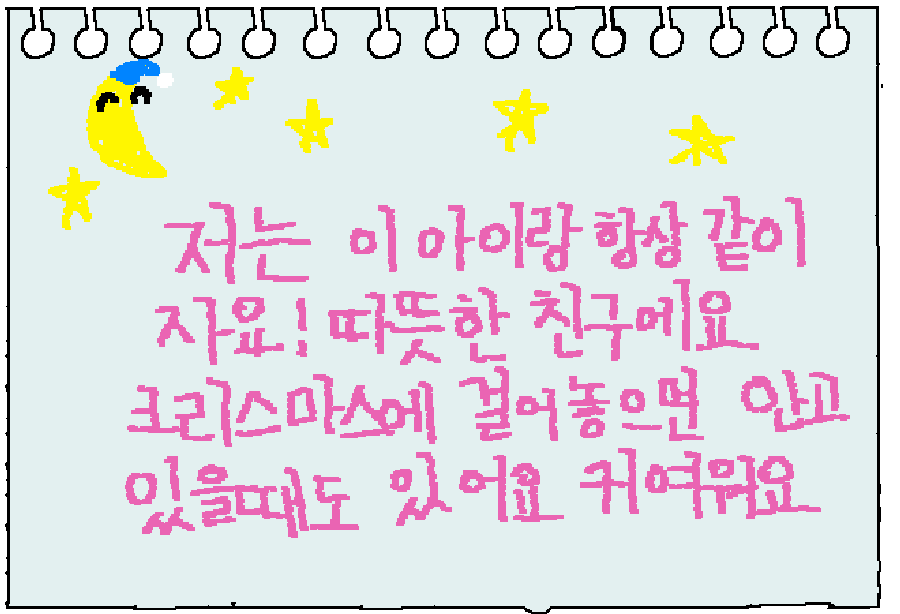 저는 이 아이랑 항상 같이
자요! 따뜻한 친구에요
크리스마스에 걸어놓으면 안고
있을때도 있어요 귀여워요